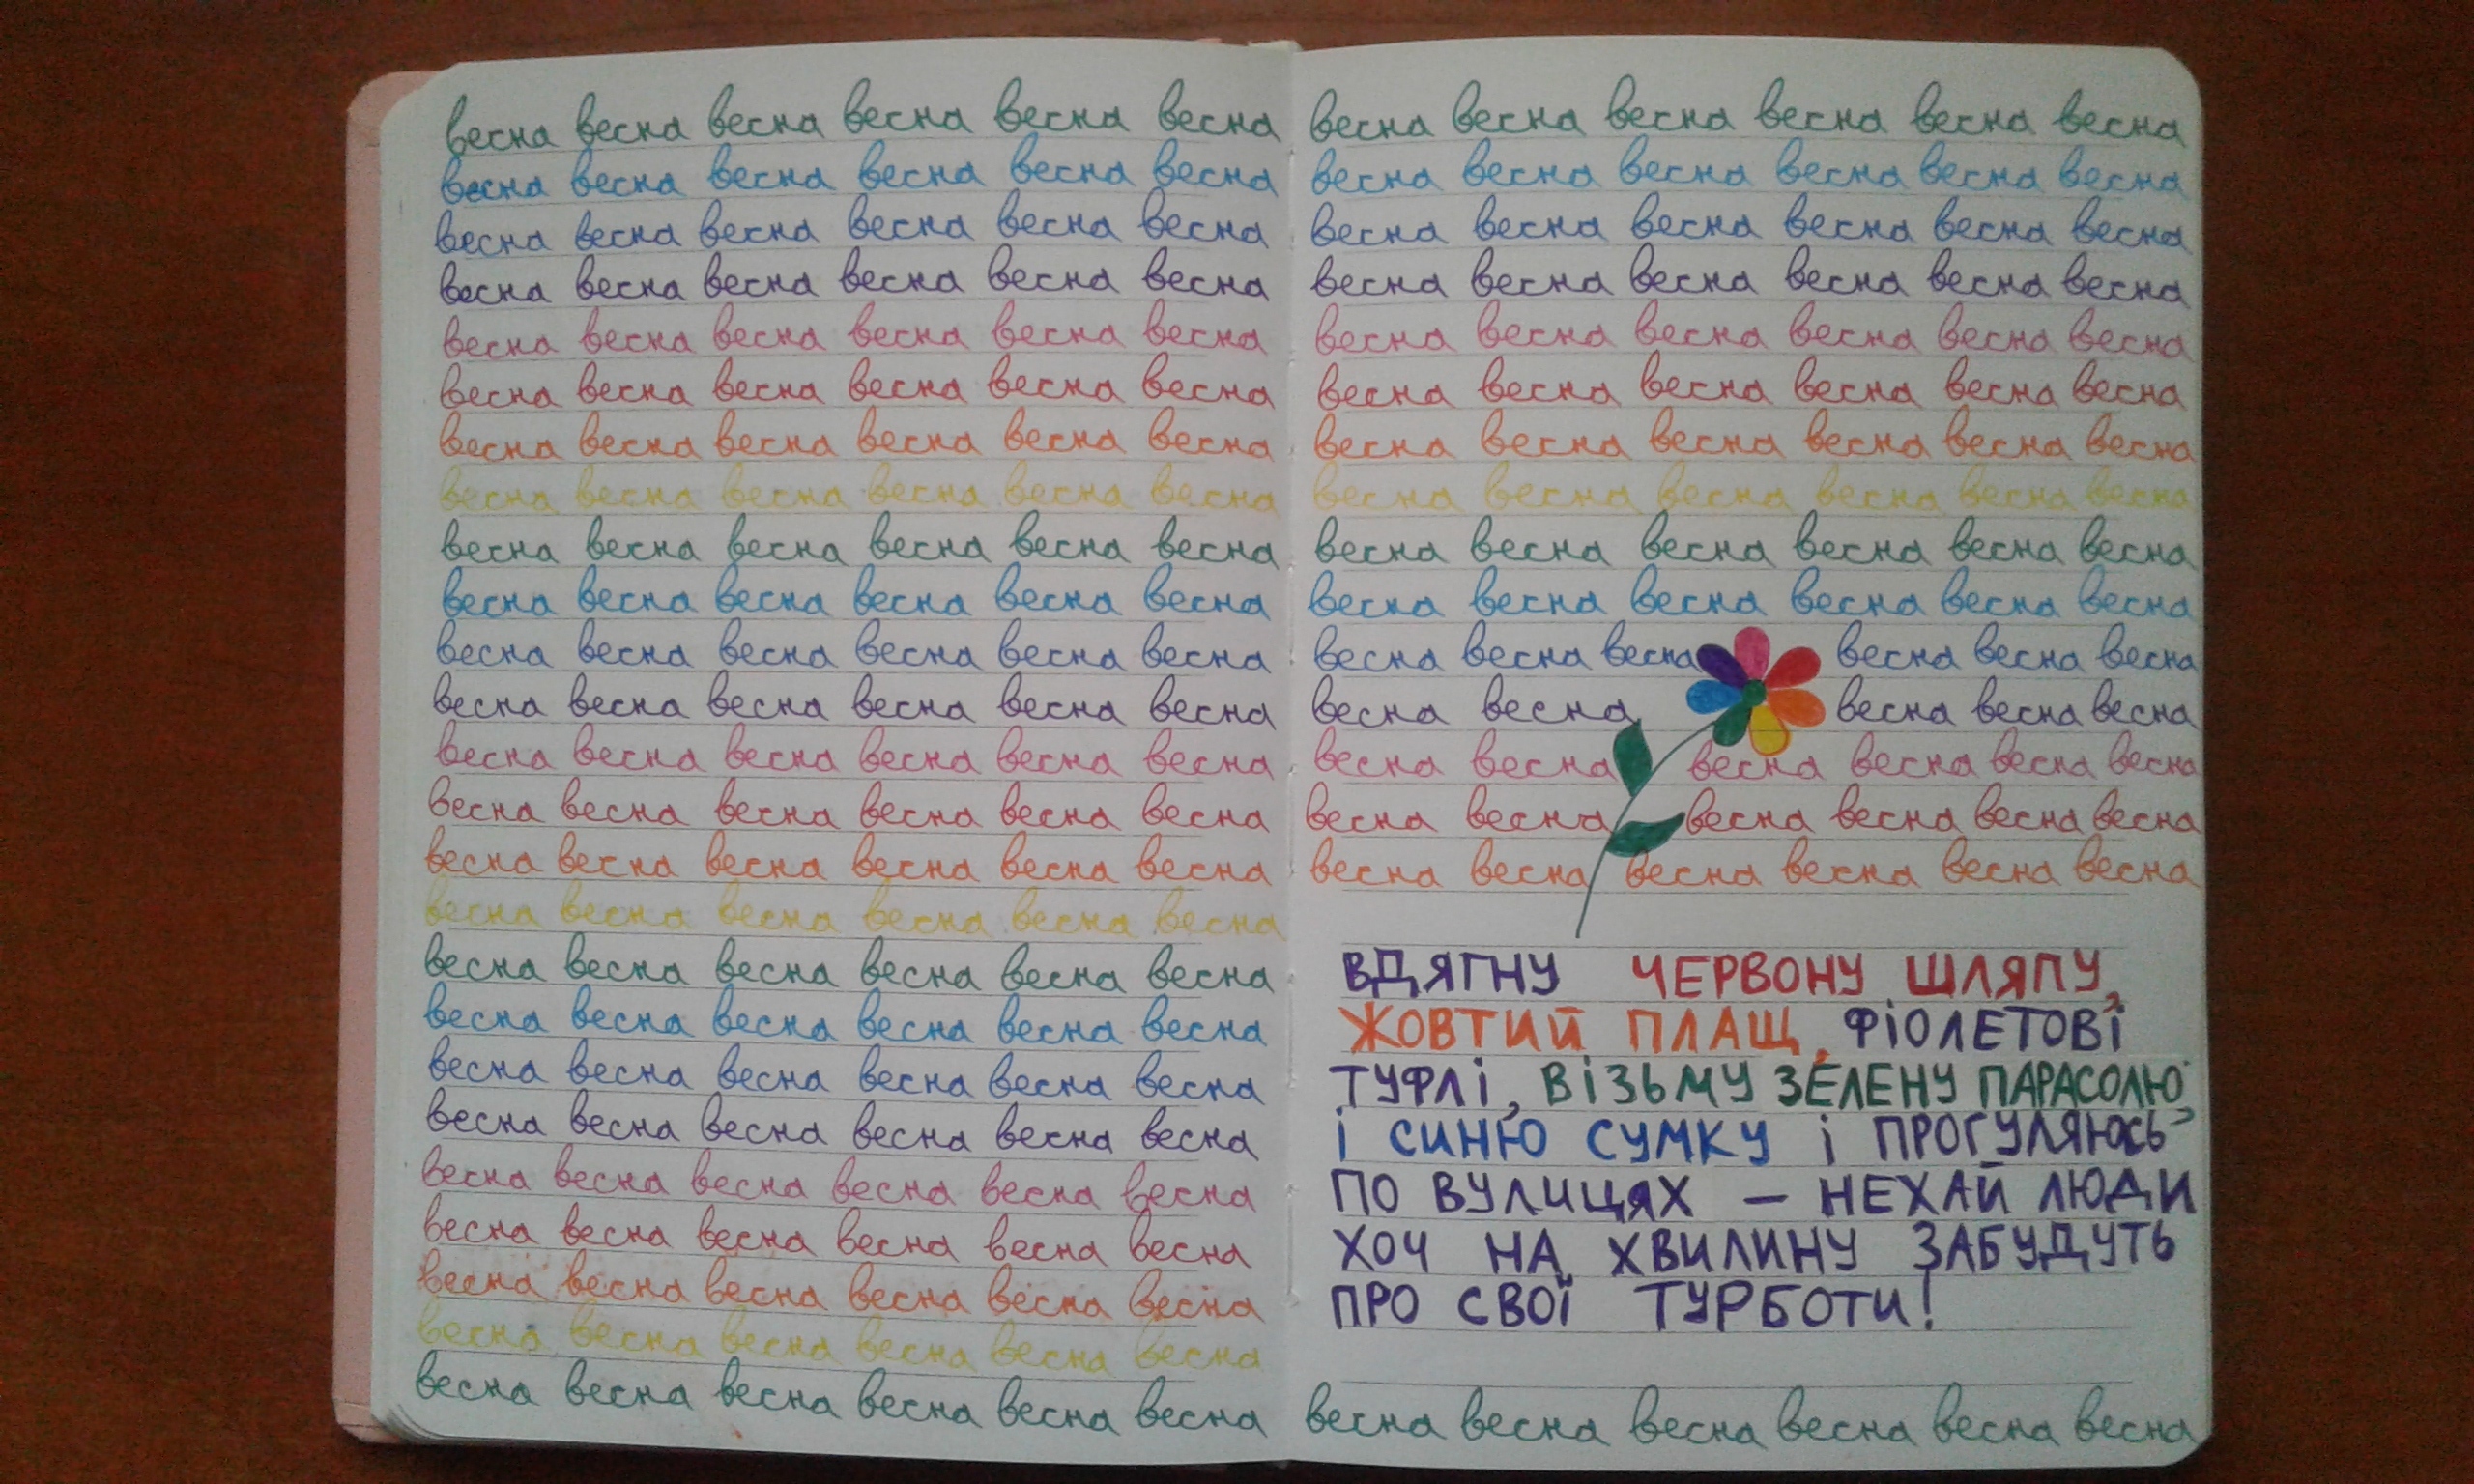 весна весна весна весна весна весна
весна весна весна весна весна весна
весна весна весна весна весна весна
весна весна весна весна весна весна
весна весна весна весна весна весна
весна весна весна весна весна весна
весна весна весна весна весна весна
весна весна весна весна весна весна
весна весна весна весна весна весна
весна весна весна весна весна весна
весна весна весна весна весна весна
весна весна весна весна весна весна
весна весна весна весна весна весна
весна весна весна весна весна весна
весна весна весна весна весна весна
весна весна весна весна весна весна
весна весна весна весна весна весна
весна весна весна весна весна весна
весна весна весна весна весна весна
весна весна весна весна весна весна
весна весна весна весна весна весна
весна весна весна весна весна весна
весна весна весна весна весна весна
весна весна весна весна весна весна
весна весна весна весна весна весна
весна весна весна весна весна весна
весна весна весна весна весна весна
весна весна весна весна весна весна
весна весна весна весна весна весна
весна весна весна весна весна весна
весна весна весна весна весна весна
весна весна весна весна весна весна
весна весна весна весна весна весна
весна весна весна весна весна весна
весна весна весна весна весна весна
весна весна весна весна весна весна
весна весна весна весна весна
весна весна весна весна весна весна
весна весна весна весна весна весна
весна весна весна весна весна весна
ВДЯГНУ ЧЕРВОНУ ШЛЯПУ,
ЖОВТИЙ ПЛАЩ, ФІОЛЕТОВІ
ТУФЛІ, ВІЗЬМУ ЗЕЛЕНУ ПАРАСОЛЮ
І СИНЮ СУМКУ І ПРОГУЛЯЮСЬ
ПО ВУЛИЦЯХ – НЕХАЙ ЛЮДИ
ХОЧ НА ХВИЛИНУ ЗАБУДУТЬ
ПРО СВОЇ ТУРБОТИ!
весна весна весна весна весна весна